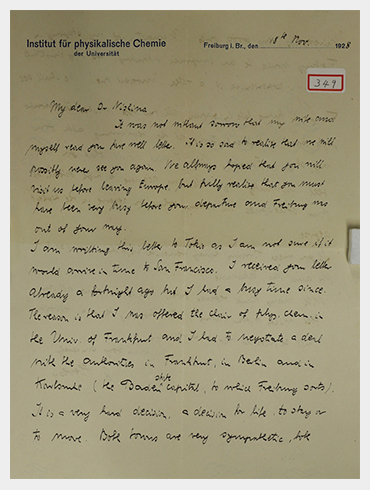 Institut für physikalische Chemie
der Universität
Freiburg i. Br., den 18th Nov. 1928
349
My dear Dr Nishina,
It was not without sorrow that my wife and
myself read your farewell letter. It is so sad to realise that we will
possibly never see you again. We always hoped that you will
visit us before leaving Europe, but fully realise that you must
have been very busy before your departure and Freiburg was
out of your way.
I am writing this letter to Tokio as I am not sure if it
would arrive in time to San Francisco. I received your letter
already a fortnight ago but I had a busy time since.
The reason is that I was offered the chair of phys. chem. in
the Univ. of Frankfurt and I had to negotiate a deal
with the authorities in Frankfurt, in Berlin and in
Karlsruhe (the Baden state capital, to which Freiburg sorts).
It is a very hard decision, a decision for life, to stay or
to move. Both towns are very sympathetic, both